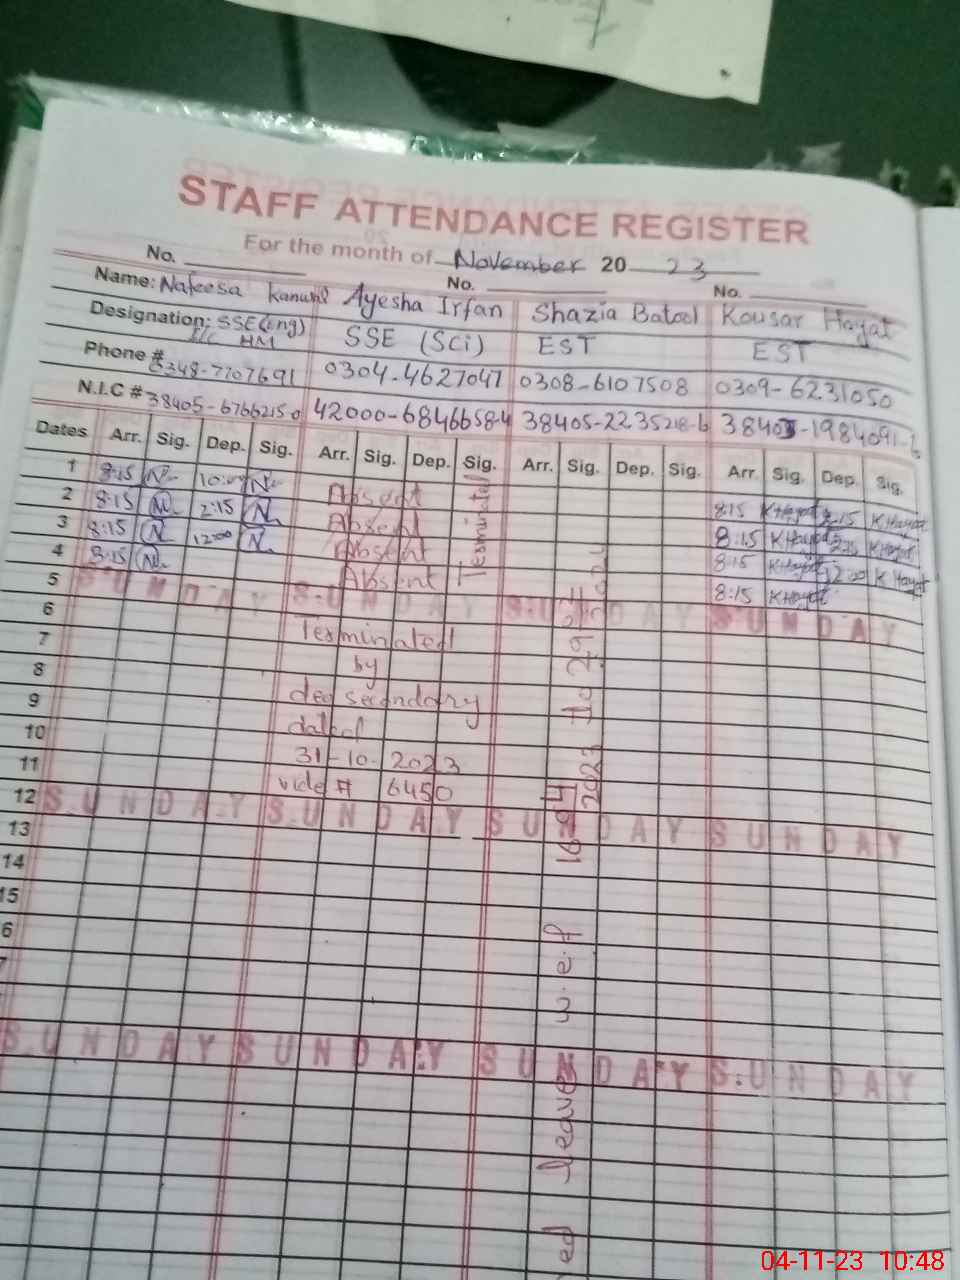 STAFF ATTENDANCE REGISTER
For the month of November 20 23
No. No. No.
Name: Nafeesa Ayesha Irfan Shazia Batool Kousar Hayat
Designation: SSE(eng) SSE (Sci) EST EST
I/C HM
Phone # 0348-7707691 0304-4627047 0308-6107508 0309-6231050
N.I.C # 38405-6766215-0 42000-6846658-4 38405-2235218-6 38405-1984091-6
Dates Arr. Sig. Dep. Sig. Arr. Sig. Dep. Sig. Arr. Sig. Dep. Sig. Arr. Sig. Dep. Sig.
1 8:15 N 10:00 N Absent 8:15 KHayat 2:15 KHayat
2 8:15 N 2:15 N Absent 8:15 KHayat 2:15 KHayat
3 8:15 N 12:00 N Absent 8:15 KHayat 12:00 KHayat
4 8:15 N Absent 8:15 KHayat
Terminated
5 SUNDAY SUNDAY SUNDAY SUNDAY
6
7 Terminated
8 by
9 deo secondary
10 dated
11 31-10-2023
12 vide # 6450
SUNDAY SUNDAY SUNDAY SUNDAY
13
14
15
6
7
SUNDAY SUNDAY SUNDAY SUNDAY
leave w.e.f
2023 to 29
04-11-23 10:48